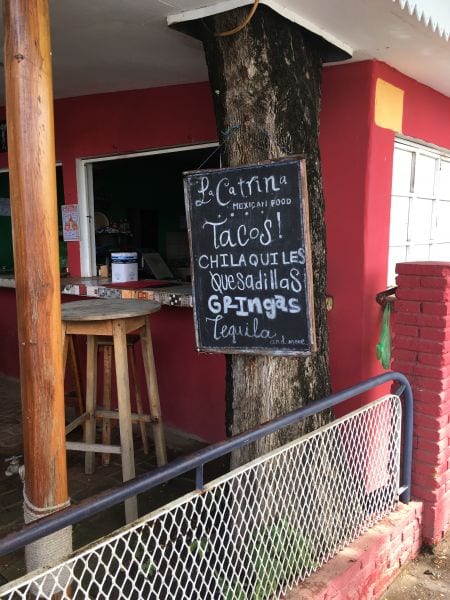 La Catrina
MEXICAN FOOD
Tacos!
CHILAQUILES
Quesadillas
GRingas
Tequila
and more